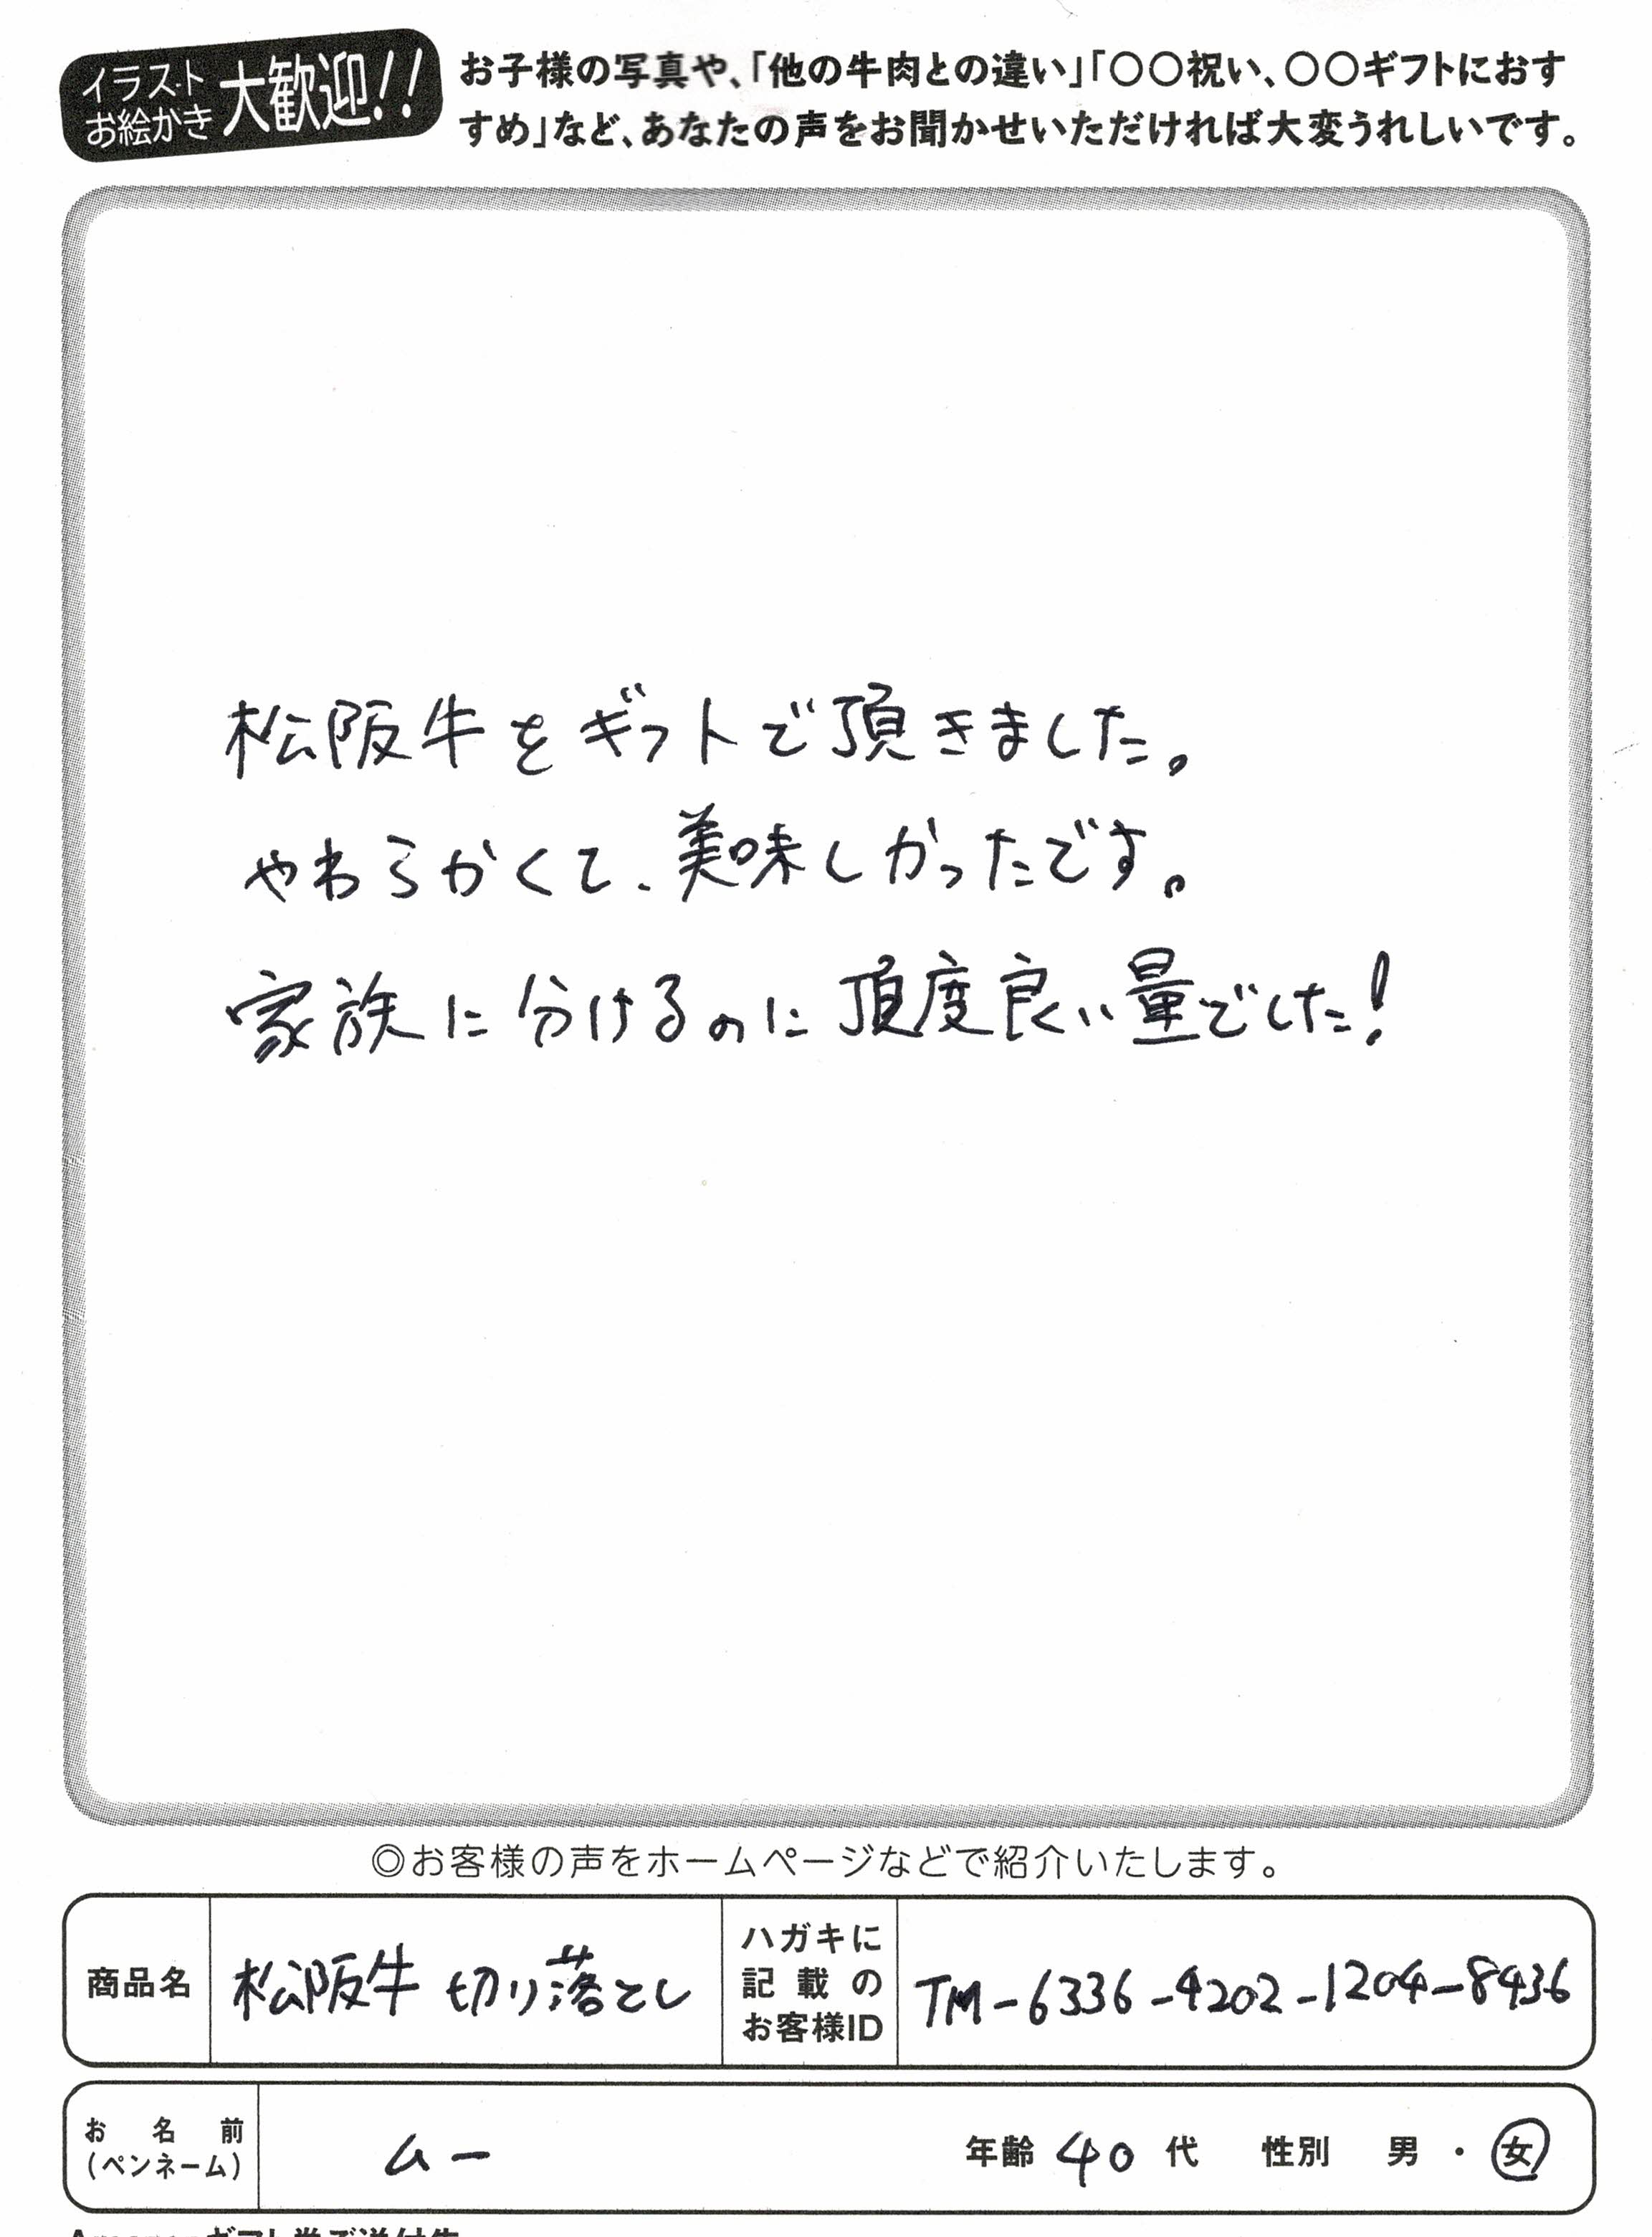 イラスト
お絵かき
大歓迎!!
お子様の写真や、「他の牛肉との違い」「〇〇祝い、〇〇ギフトにおす
すめ」など、あなたの声をお聞かせいただければ大変うれしいです。
松阪牛をギフトで頂きました。
やわらかくて、美味しかったです。
家族に分けるのに頂度良い量でした!
◎お客様の声をホームページなどで紹介いたします。
商品名
松阪牛 切り落とし
ハガキに
記載の
お客様ID
TM-6336-4202-1204-8436
お名前
(ペンネーム)
ムー
年齢 40 代 性別 男・女
Amazonギフト券ご送付先